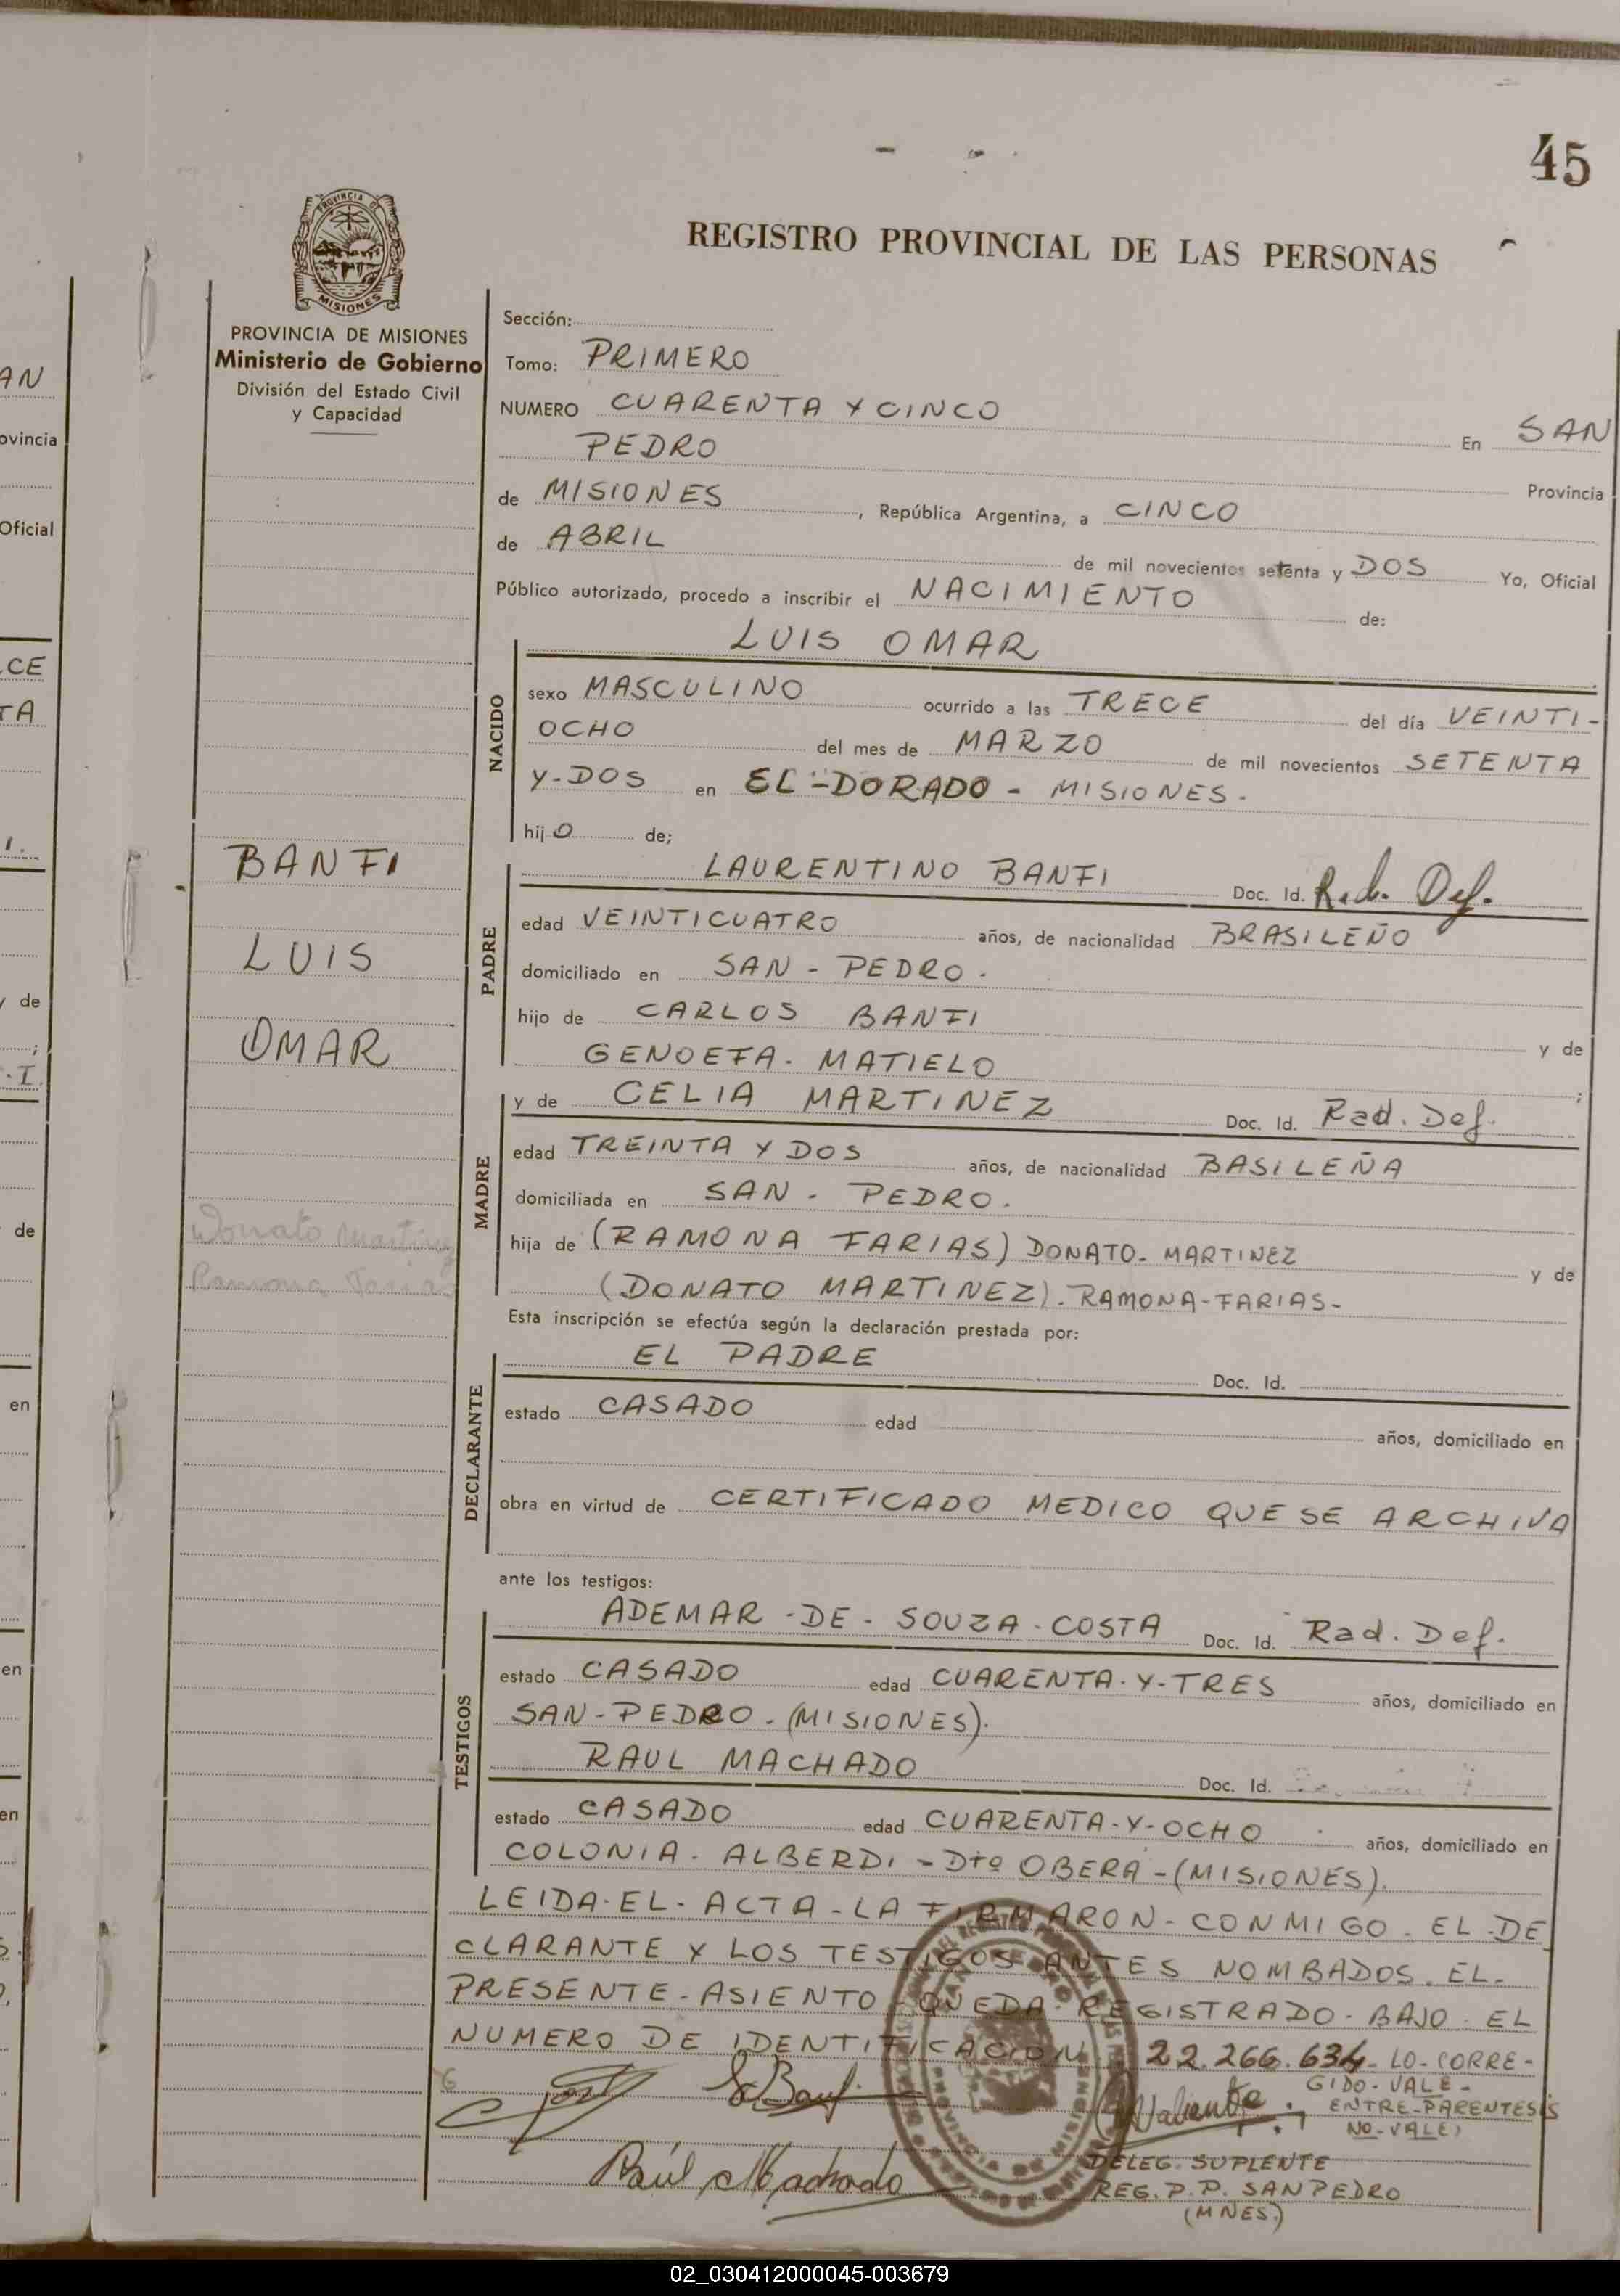 45
REGISTRO PROVINCIAL DE LAS PERSONAS
PROVINCIA DE
MISIONES
PROVINCIA DE MISIONES
Ministerio de Gobierno
División del Estado Civil
y Capacidad
Sección:
Tomo: PRIMERO
NUMERO CUARENTA Y CINCO En SAN
PEDRO Provincia
de MISIONES, República Argentina, a CINCO
de ABRIL de mil novecientos setenta y DOS Yo, Oficial
Público autorizado, procedo a inscribir el NACIMIENTO de:
LUIS OMAR
NACIDO
sexo MASCULINO ocurrido a las TRECE del día VEINTI-
OCHO del mes de MARZO de mil novecientos SETENTA
Y-DOS en EL-DORADO - MISIONES-
hijO de;
BANFI
LUIS
OMAR
PADRE
LAURENTINO BANFI Doc. Id. Rad. Def.
edad VEINTICUATRO años, de nacionalidad BRASILEÑO
domiciliado en SAN - PEDRO.
hijo de CARLOS BANFI y de
GENOEFA. MATIELO;
MADRE
y de CELIA MARTINEZ Doc. Id. Rad. Def.
edad TREINTA Y DOS años, de nacionalidad BASILEÑA
domiciliada en SAN. PEDRO.
hija de (RAMONA FARIAS) DONATO-MARTINEZ y de
(DONATO MARTINEZ). RAMONA-FARIAS-
Donato Martinez
Ramona Farias
Esta inscripción se efectúa según la declaración prestada por:
DECLARANTE
EL PADRE Doc. Id.
estado CASADO edad años, domiciliado en
obra en virtud de CERTIFICADO MEDICO QUE SE ARCHIVA
ante los testigos:
TESTIGOS
ADEMAR-DE-SOUZA-COSTA Doc. Id. Rad. Def.
estado CASADO edad CUARENTA-Y-TRES años, domiciliado en
SAN-PEDRO-(MISIONES).
RAUL MACHADO Doc. Id.
estado CASADO edad CUARENTA-Y-OCHO años, domiciliado en
COLONIA. ALBERDI - Dtº OBERA-(MISIONES).
LEIDA-EL-ACTA-LA FIRMARON-CONMIGO. EL-DE
CLARANTE Y LOS TESTIGOS ANTES NOMBADOS. EL-
PRESENTE-ASIENTO-QUEDA-REGISTRADO-BAJO-EL
NUMERO DE IDENTIFICACION 22.266.634- LO-CORRE-
GIDO-VALE-
ENTRE-PARENTESIS
NO-VALE)
Valiente
Raúl Machado
DELEG. SUPLENTE
REG. P. P. SAN PEDRO
(MNES.)
02_030412000045-003679